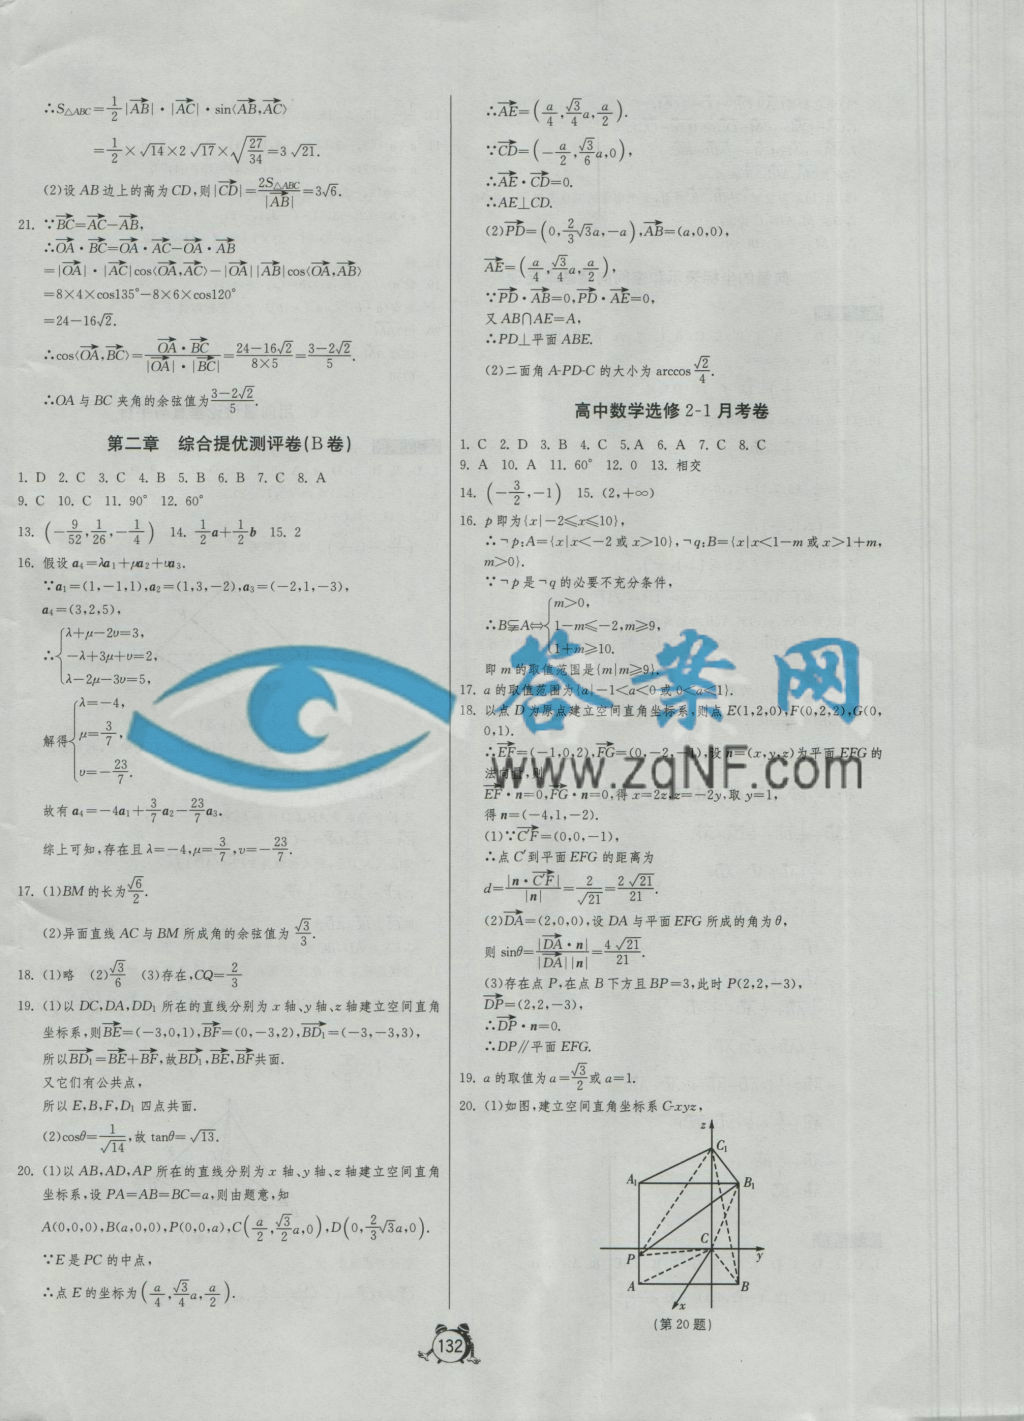 ∴S△ABC=1/2|AB|·|AC|·sin⟨AB,AC⟩
=1/2×√14×2√17×√(27/34)=3√21.
(2)设AB边上的高为CD,则|CD|=2S△ABC/|AB|=3√6.
21. ∵BC=AC-AB,
∴OA·BC=OA·AC-OA·AB
=|OA|·|AC|cos⟨OA,AC⟩-|OA||AB|cos⟨OA,AB⟩
=8×4×cos135°-8×6×cos120°
=24-16√2.
∴cos⟨OA,BC⟩=OA·BC/(|OA|·|BC|)=(24-16√2)/(8×5)=(3-2√2)/5.
∴OA与BC夹角的余弦值为(3-2√2)/5.
第二章 综合提优测评卷(B卷)
1. D 2. C 3. C 4. B 5. B 6. B 7. C 8. A
9. C 10. C 11. 90° 12. 60°
13. (-9/52,1/26,-1/4) 14. 1/2a+1/2b 15. 2
16. 假设a₄=λa₁+μa₂+υa₃.
∵a₁=(1,-1,1),a₂=(1,3,-2),a₃=(-2,1,-3),
a₄=(3,2,5),
∴{λ+μ-2υ=3,
-λ+3μ+υ=2,
λ-2μ-3υ=5,
解得{λ=-4,
μ=3/7,
υ=-23/7.
故有a₄=-4a₁+3/7a₂-23/7a₃.
综上可知,存在且λ=-4,μ=3/7,υ=-23/7.
17. (1)BM的长为√6/2.
(2)异面直线AC与BM所成角的余弦值为√3/3.
18. (1)略 (2)√3/6 (3)存在,CQ=2/3
19. (1)以DC,DA,DD₁所在的直线分别为x轴、y轴、z轴建立空间直角
坐标系,则BE=(-3,0,1),BF=(0,-3,2),BD₁=(-3,-3,3),
所以BD₁=BE+BF,故BD₁,BE,BF共面.
又它们有公共点,
所以E,B,F,D₁四点共面.
(2)cosθ=1/√14,故tanθ=√13.
20. (1)以AB,AD,AP所在的直线分别为x轴、y轴、z轴建立空间直角
坐标系,设PA=AB=BC=a,则由题意,知
A(0,0,0),B(a,0,0),P(0,0,a),C(a/2,√3/2a,0),D(0,2/3√3a,0).
∵E是PC的中点,
∴点E的坐标为(a/4,√3/4a,a/2).
∴AE=(a/4,√3/4a,a/2).
∵CD=(-a/2,√3/6a,0),
∴AE·CD=0.
∴AE⊥CD.
(2)PD=(0,2/3√3a,-a),AB=(a,0,0),
AE=(a/4,√3/4a,a/2),
∵PD·AB=0,PD·AE=0,
又AB∩AE=A,
∴PD⊥平面ABE.
(2)二面角A-PD-C的大小为arccos√2/4.
高中数学选修2-1月考卷
1. C 2. D 3. B 4. C 5. A 6. A 7. C 8. C
9. A 10. A 11. 60° 12. 0 13. 相交
14. (-3/2,-1) 15. (2,+∞)
16. p即为{x|-2≤x≤10},
∴¬p:A={x|x<-2或x>10},¬q:B={x|x<1-m或x>1+m,
m>0}.
∵¬p是¬q的必要不充分条件,
∴B⫋A⇔{m>0,
1-m≤-2,m≥9,
1+m≥10.
即m的取值范围是{m|m≥9}.
17. a的取值范围为{a|-1<a<0或0<a<1}.
18. 以点D为原点建立空间直角坐标系,则点E(1,2,0),F(0,2,2),G(0,
0,1).
∴EF=(-1,0,2),FG=(0,-2,-1),设n=(x,y,z)为平面EFG的
法向量,则
EF·n=0,FG·n=0,得x=2z,z=-2y,取y=1,
得n=(-4,1,-2).
(1)∵C′F=(0,0,-1),
∴点C′到平面EFG的距离为
d=|n·C′F|/|n|=2/√21=2√21/21.
(2)DA=(2,0,0),设DA与平面EFG所成的角为θ,
则sinθ=|DA·n|/(|DA||n|)=4√21/21.
(3)存在点P,在点B下方且BP=3,此时P(2,2,-3),
DP=(2,2,-3),
∴DP·n=0.
∴DP∥平面EFG.
19. a的取值为a=√3/2或a=1.
20. (1)如图,建立空间直角坐标系C-xyz,
z
C₁
A₁
B₁
C
P
y
A
B
x
(第20题)
132
答案网
www.zqNF.com